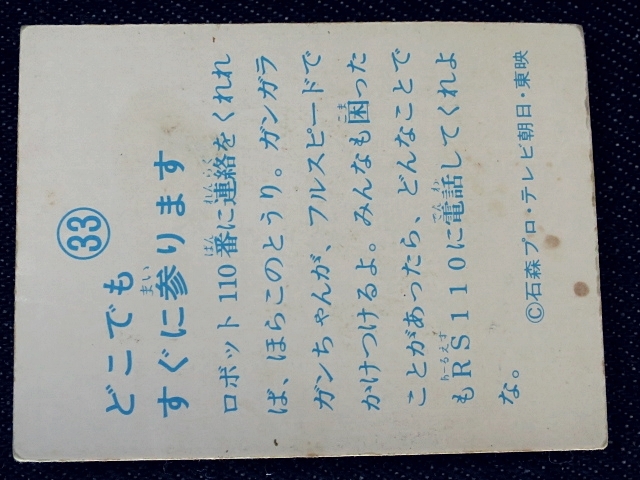 ㉝
どこでも
すぐに参ります
ロボット110番に連絡をくれれ
ば、ほらこのとうり。ガンガラ
ガンちゃんが、フルスピードで
かけつけるよ。みんなも困った
ことがあったら、どんなことで
もRS110に電話してくれよ
な。
©石森プロ・テレビ朝日・東映